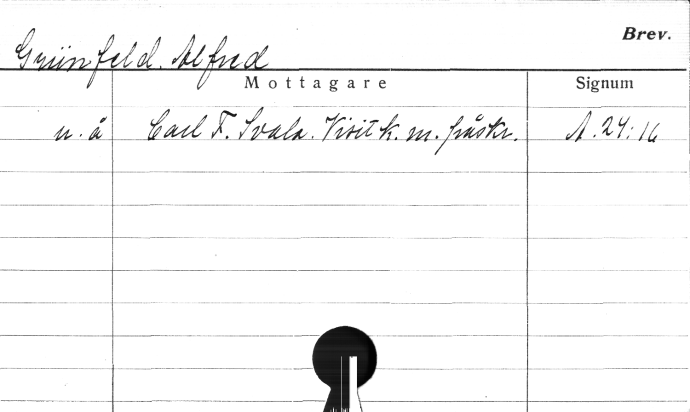 Brev.
Grünfeld, Alfred
Mottagare Signum
n. å Carl F. Svala. Visitk. m. påskr. A. 24: 16